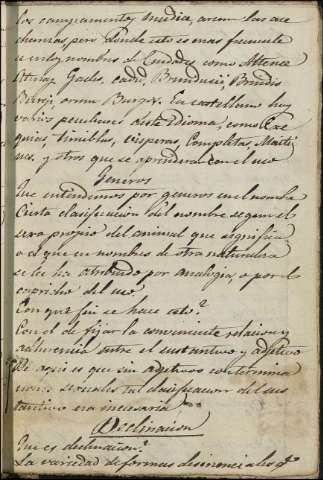 los campamentos, media, arum las ace
chanzas, pero donde esto es mas frecuente
es en los nombres de Ciudades, como Athenae
Atenas, Gades, Cadiz, Brundusii, Brindis
Burgi, orum Burgos. En castellano hay
varios peculiares de este idioma, como Exe
quias, tinieblas, visperas, Completas, Maiti
nes, y otros que se aprenderan con el uso
Generos
Que entendemos por generos en el nombre
Cierta clasificacion del nombre segun el
sexo propio del animal que significa,
o el que en nombres de otra naturaleza
se les ha atribuido por analogia, o por el
capricho del uso.
Con qué fin se hace esto?
Con el de fijar la conveniente relacion y
adherencia entre el sustantivo y adjetivo
De aqui es que sin adjetivos con termina
ciones sexuales tal clasificacion del sus
tantivo era innecesaria
Declinacion
Que es declinacion?
La variedad de formas desinenciales qe